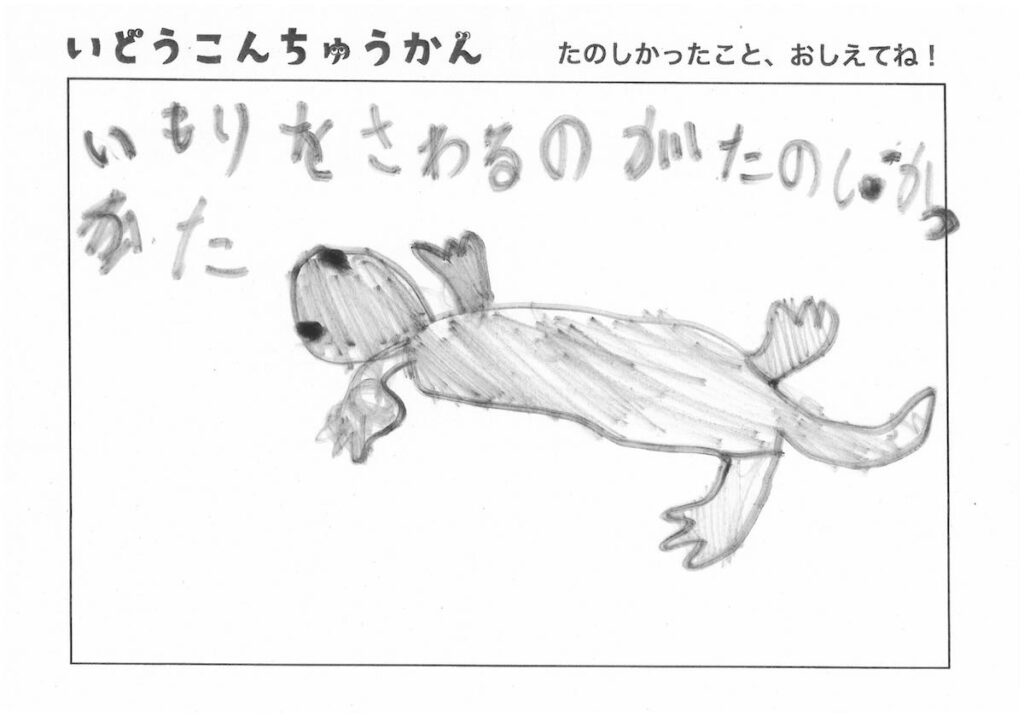 いどうこんちゅうかん たのしかったこと、おしえてね！
いもりをさわるのがたのしかっ
かた